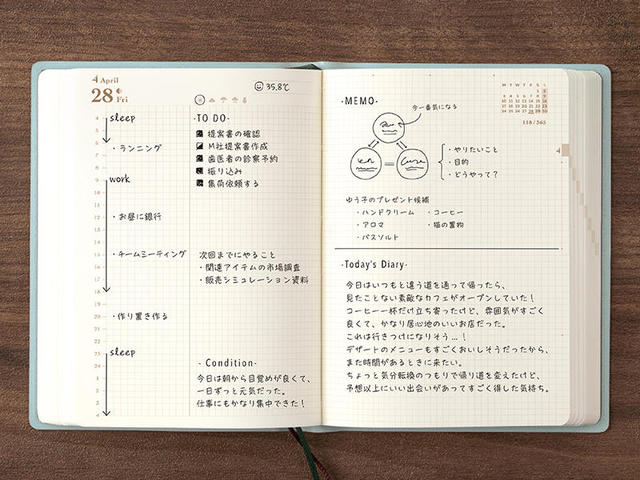 4 April
28 Fri
35.8℃
4
sleep
5
6
・ランニング
work
・お昼に銀行
・チームミーティング
18
19
20
・作り置き作る
23
24
sleep
1
2
3
4
・TO DO・
提案書の確認
M社提案書作成
歯医者の診察予約
振り込み
集荷依頼する
次回までにやること
・関連アイテムの市場調査
・販売シミュレーション資料
・Condition・
今日は朝から目覚めが良くて、
一日ずっと元気だった。
仕事にもかなり集中できた!
・MEMO・
今一番気になる
・やりたいこと
・目的
・どうやって?
M T W T F S S
118 / 365
4
ゆう子のプレゼント候補
・ハンドクリーム ・コーヒー
・アロマ ・猫の置物
・バスソルト
・Today's Diary・
今日はいつもと違う道を通って帰ったら、
見たことない素敵なカフェがオープンしていた!
コーヒー一杯だけ立ち寄ったけど、雰囲気がすごく
良くて、かなり居心地のいいお店だった。
これは行きつけになりそう…!
デザートのメニューもすごくおいしそうだったから、
また時間があるときに来たい。
ちょっと気分転換のつもりで帰り道を変えたけど、
予想以上にいい出会いがあってすごく得した気持ち。